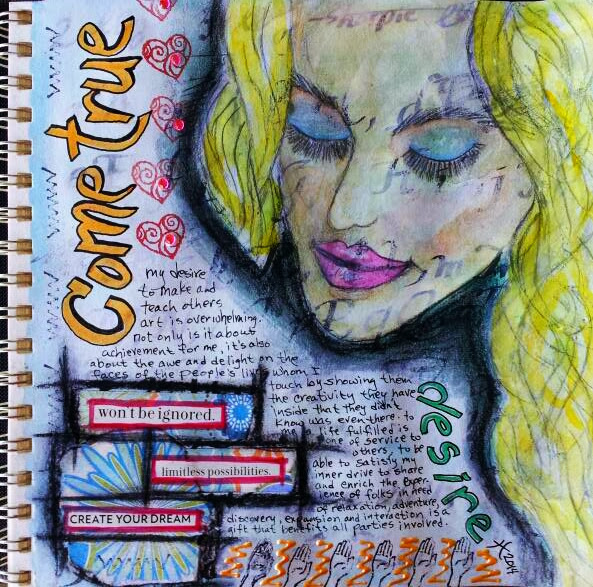 Sharpie
Come true
my desire
to make and
teach others
art is overwhelming.
Not only is it about
achievement for me, it's also
about the awe and delight on the
faces of the people's lives whom I
touch by showing them
the creativity they have
inside that they didn't
know was even there. to
me a life fulfilled is
one of service to
others, to be
able to satisfy my
inner drive to share
and enrich the exper-
ience of folks in need
of relaxation, adventure,
discovery, expansion and interaction, is a
gift that benefits all parties involved.
won't be ignored.
limitless possibilities.
CREATE YOUR DREAM
desire
2014